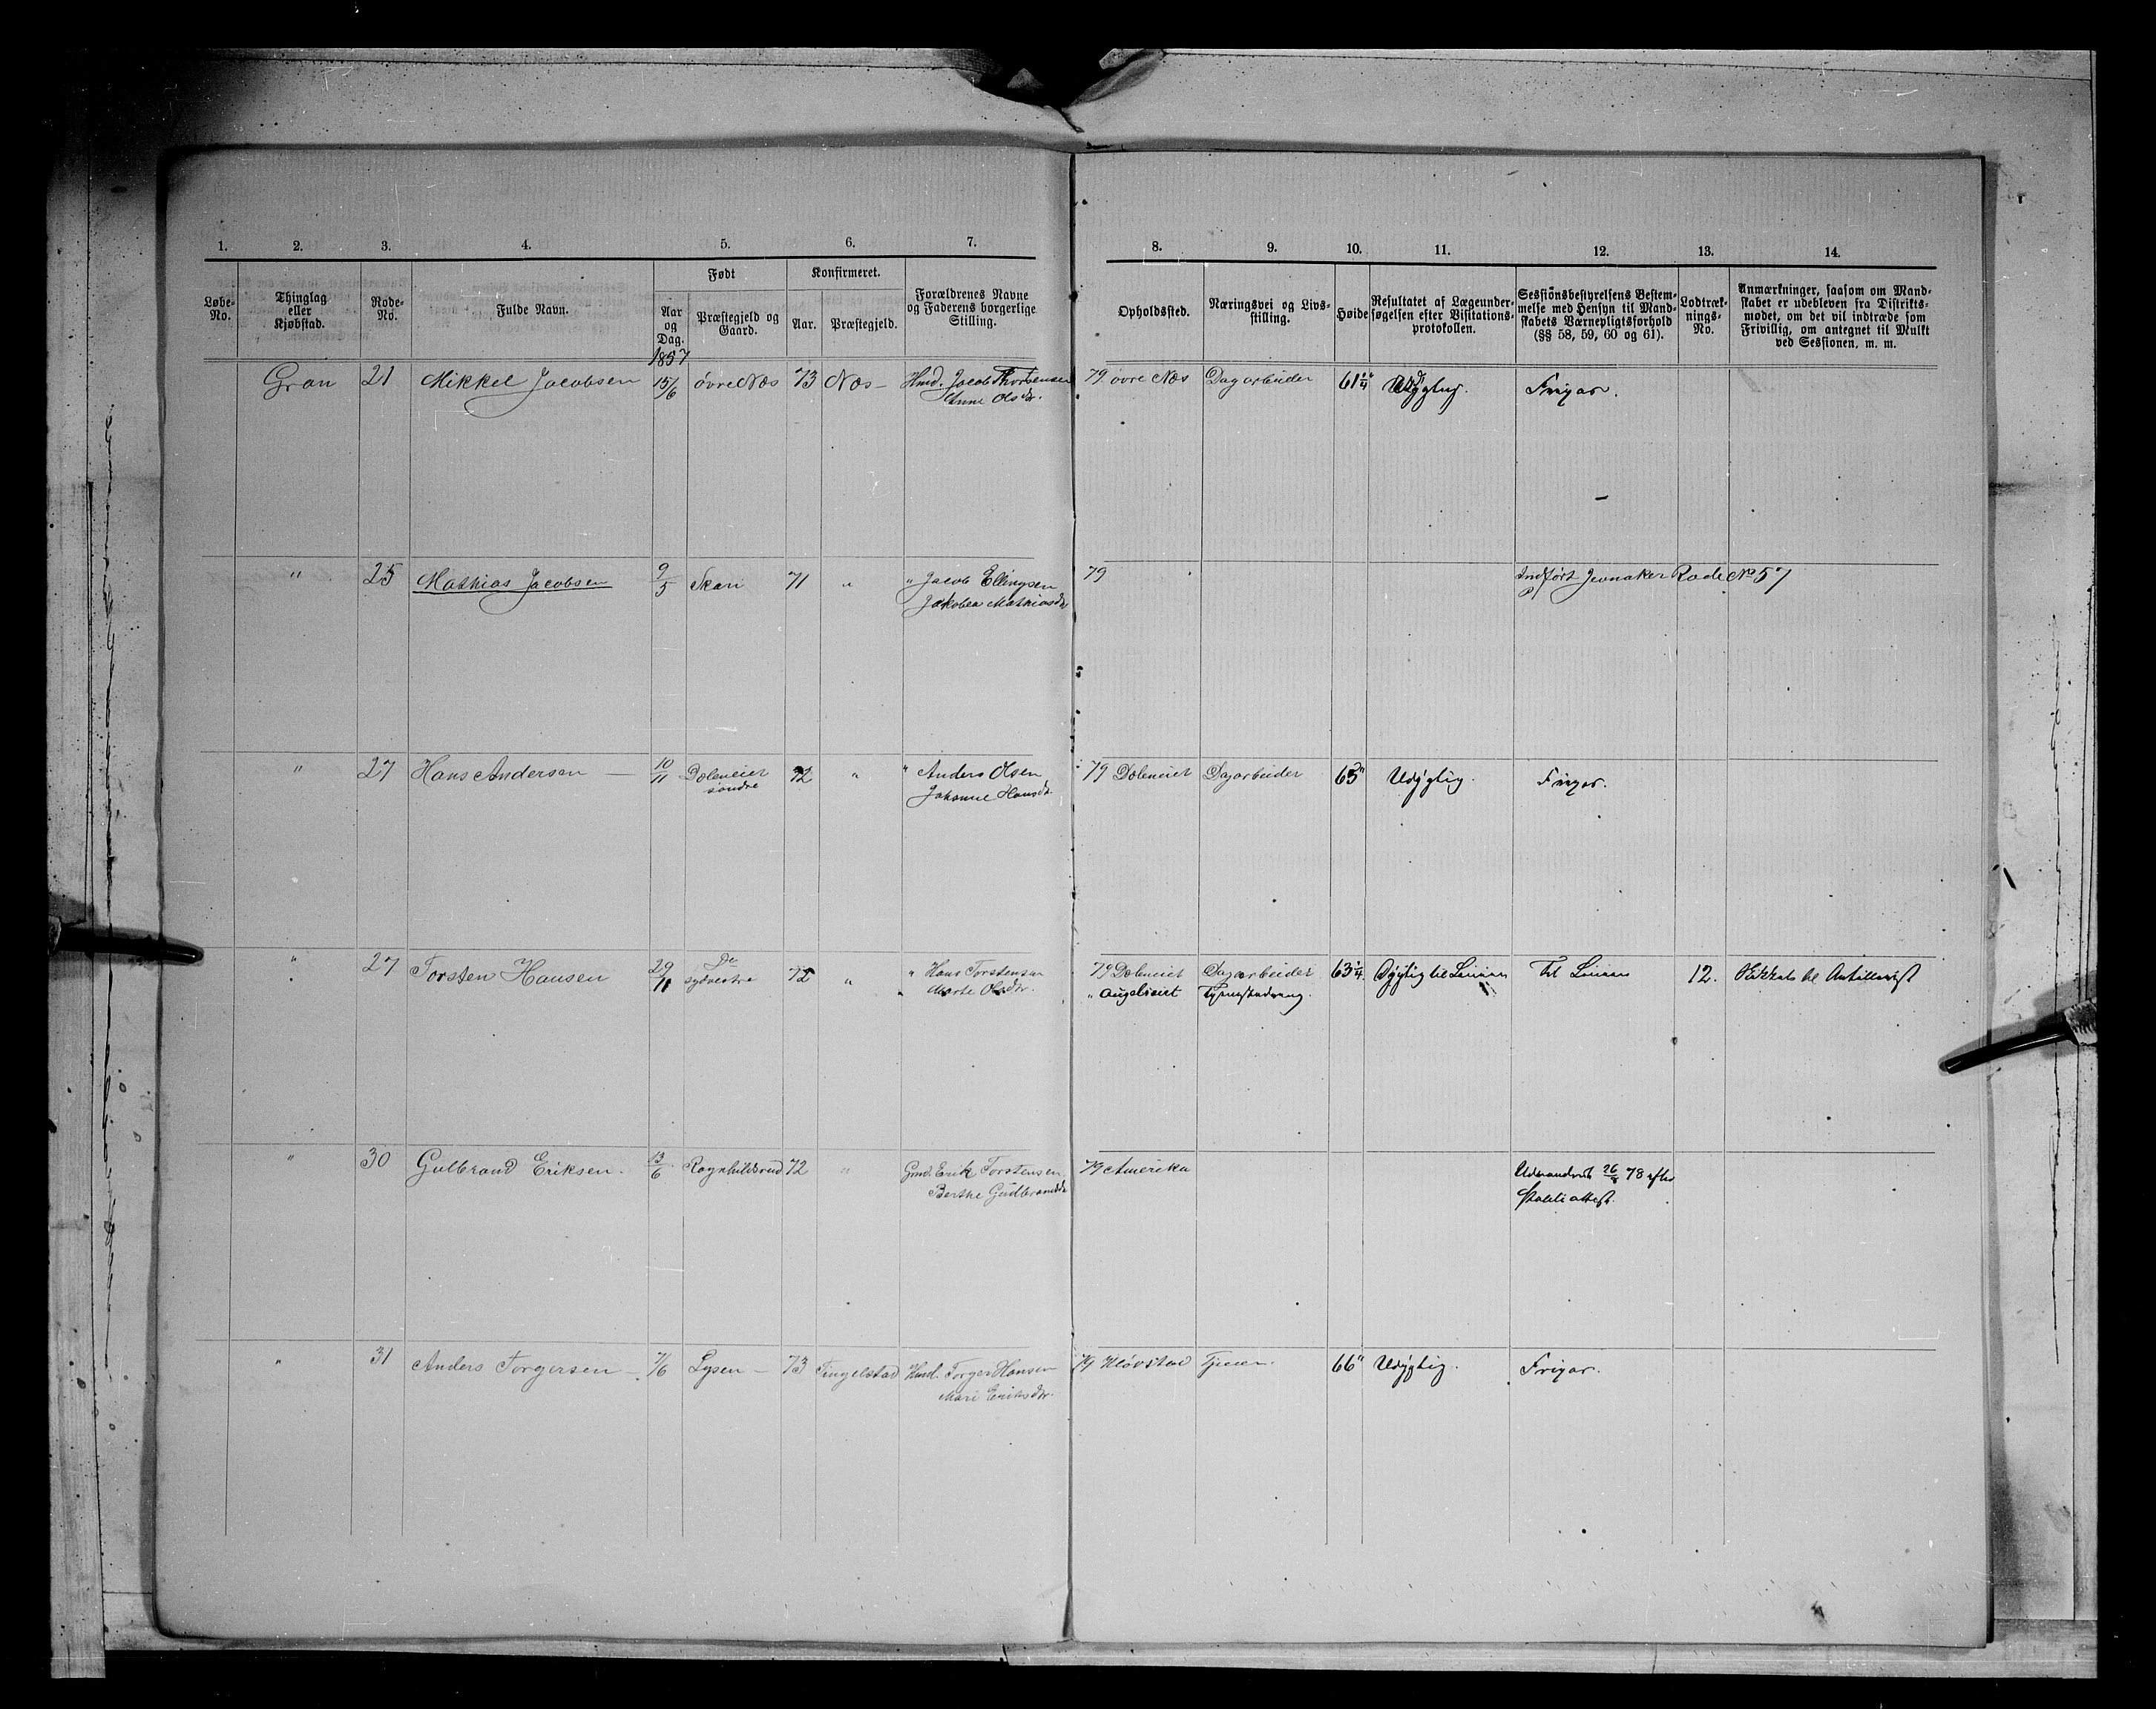 1. 2. 3. 4. 5. 6. 7. 8. 9. 10. 11. 12. 13. 14.
Løbe-No. Thinglag eller Kjøbstad. Rode-No. Fulde Navn. Født Aar og Dag. Præstegjeld og Gaard. Konfirmeret. Aar. Præstegjeld. Forældrenes Navne og Faderens borgerlige Stilling. Opholdssted. Næringsvei og Livsstilling. Høide Resultatet af Lægeundersøgelsen efter Visitationsprotokollen. Sessionsbestyrelsens Bestemmelse med Hensyn til Mandskabets Værnepligtsforhold (§§ 58, 59, 60 og 61). Lodtræknings-No. Anmærkninger, saasom om Mandskabet er udebleven fra Distriktsmødet, om det vil indtræde som Frivillig, om antegnet til Mulkt ved Sessionen, m. m.
1857
Gran 21 Mikkel Jacobsen 15/6 øvre Næs 73 Næs - Hmd. Jacob Thorstensen 79 øvre Næs Dagarbeider 61 1/4" Udygtig. Frigar.
Anne Olsdr.
" 25 Mathias Jacobsen 9/5 Skari 71 " " Jacob Ellingsen 79 Indført Jevnaker Rode No 57
Jakobea Mathiasdr
" 27 Hans Andersen — 10/11 Dæleneiet søndre 72 " " Anders Olsen 79 Dæleneiet Dagarbeider 65" Udygtig. Frigar.
Johanne Hansdr.
" 27 Torsten Hansen 29/11 Do sydvestre 72 " " Hans Torstensen 79 Dæleneiet Dagarbeider 63 1/4. Dygtig til Linien Til Linien 12. Skikket til Artillerist
Marte Olsdr. "
" 30 Gulbrand Eriksen. 13/6 Ragnhildsrud 72 " Gmd. Erik Torstensen 79 Amerika Udvandret 26/4 78 efter
Berthe Gudbrandsdr attest.
" 31 Anders Torgersen - 7/6 Lysen - 73 Tingelstad Hmd. Torger Hansen 79 Kløvstad Tjener. 66" Udygtig. Frigar.
Mari Eriksdr.